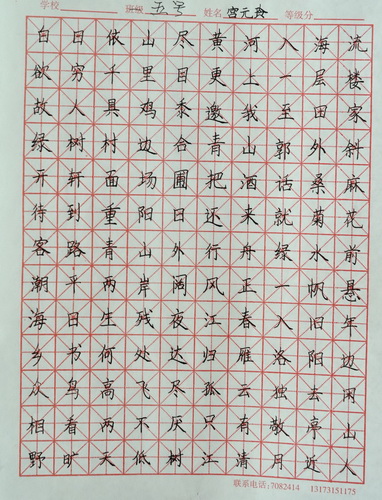 学校 班级 五号 姓名 宫元玲 等级分
白日依山尽黄河入海流
欲穷千里目更上一层楼
故人具鸡黍邀我至田家
绿树村边合青山郭外斜
开轩面场圃把酒话桑麻
待到重阳日还来就菊花
客路青山外行舟绿水前
潮平两岸阔风正一帆悬
海日生残夜江春入旧年
乡书何处达归雁洛阳边
众鸟高飞尽孤云独去闲
相看两不厌只有敬亭山
野旷天低树江清月近人
联系电话:7082414 13173151175